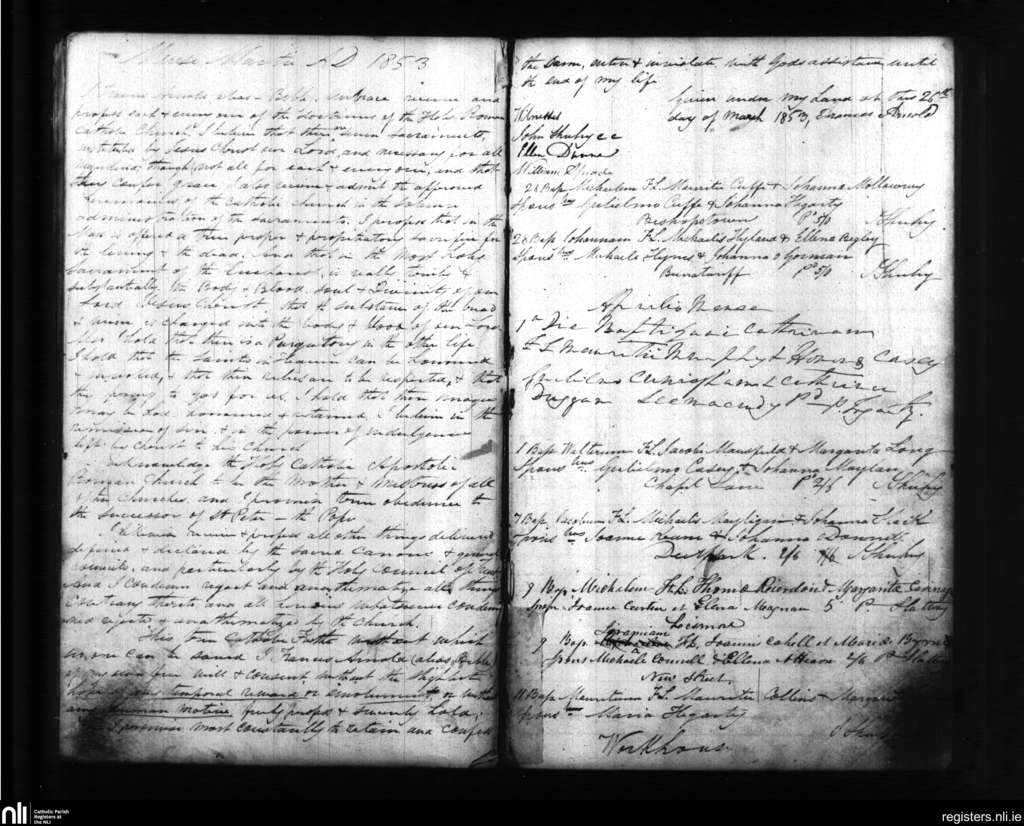 Mense Martii A D 1853
I Francis Arnold alias Bible, embrace receive and
profess each & every one of the doctrines of the Holy Roman
Catholic Church. I believe that there are seven sacraments,
instituted by Jesus Christ our Lord, and necessary for all
mankind, though not all for each & every one, and that
they confer grace I also receive & admit the approved
ceremonies of the Catholic Church in the solemn
administration of the sacraments. I profess that in the
Mass is offered a true proper & propitiatory sacrifice for
the living & the dead. And that in the Most Holy
Sacrament of the Eucharist is really truly &
substantially the Body & Blood, soul & Divinity of our
Lord Jesus Christ that the substance of the bread
& wine is changed into the body & blood of our Lord
Also I hold that there is a Purgatory in the other life
I hold that the Saints in Heaven can be honoured
& invoked, & that their relics are to be respected, & that
they pray to God for us. I hold that their images
may be had honoured & retained. I believe in the
remission of sin, & in the power of indulgences
left by Christ to his Church
I acknowledge the Holy Catholic Apostolic
Roman Church to be the Mother & Mistress of all
other Churches, and I promise true obedience to
the successor of St Peter – the Pope
I likewise receive & profess all other things delivered
defined & declared by the sacred canons & general
councils, and particularly by the Holy Council of Trent
and I condemn reject and anathematize all things
contrary thereto and all errors whatsoever condem
ned rejected & anathematized by the Church.
This true Catholic Faith without which
no one can be saved I Francis Arnold (alias Bible)
of my own free will & consent, without the slightest
hope of any temporal reward or emolument or other
any human motive freely profess & sincerely hold;
I promise most constantly to retain and confess
the same, entire & inviolate, with Gods assistance until
the end of my life
Given under my hand at this 26th
day of March 1853, Francis Arnold
Witnesses
John Shuby c c
Ellen Dunne
William
26 Bap Michaelem F.L. Mauritii Cuffe & Johanna Mollowny
Spons bus Gulielmo Cuffe & Johanna Hagarty
Bishopstown P 5/0
28 Bap Johannam F.L. Michaelis Hyland & Ellena Begley
Spons bus Michaele Hynes & Johanna O Gorman
P 5/0
Aprilis Mense
1a Die Baptizavi Catherinam
F L Mauritii Murphy & Honora Casey
Gulielmo Cunigham & Catherina
Duggan Pd
1 Bap Walterum F.L. Jacobi Mansfield & Margarita Long
Spons bus Gulielmo Casey & Johanna Naylan
Chapel Lane P 2/6
7 Bap Jacobum F.L. Michaelis & Johanna Slack
Spons bus Joanne & Johanna Donnell
Deerpark. 2/6
9 Bap. Michaelem F.L. Thoma Riordon & Margarita
Spons. Joanne et Elena Magnan 5
9 Bap. F.L. Joannis Cahell et Maria Byrne
Spons Michaele Connell & Ellena Ahearn 2/6 Pd
New Street.
11 Bap Mauritium F.L. Mauritii Collins & Margarita
Spons Maria Hegarty
Workhouse
nli
Catholic Parish
Registers at
the NLI
registers.nli.ie